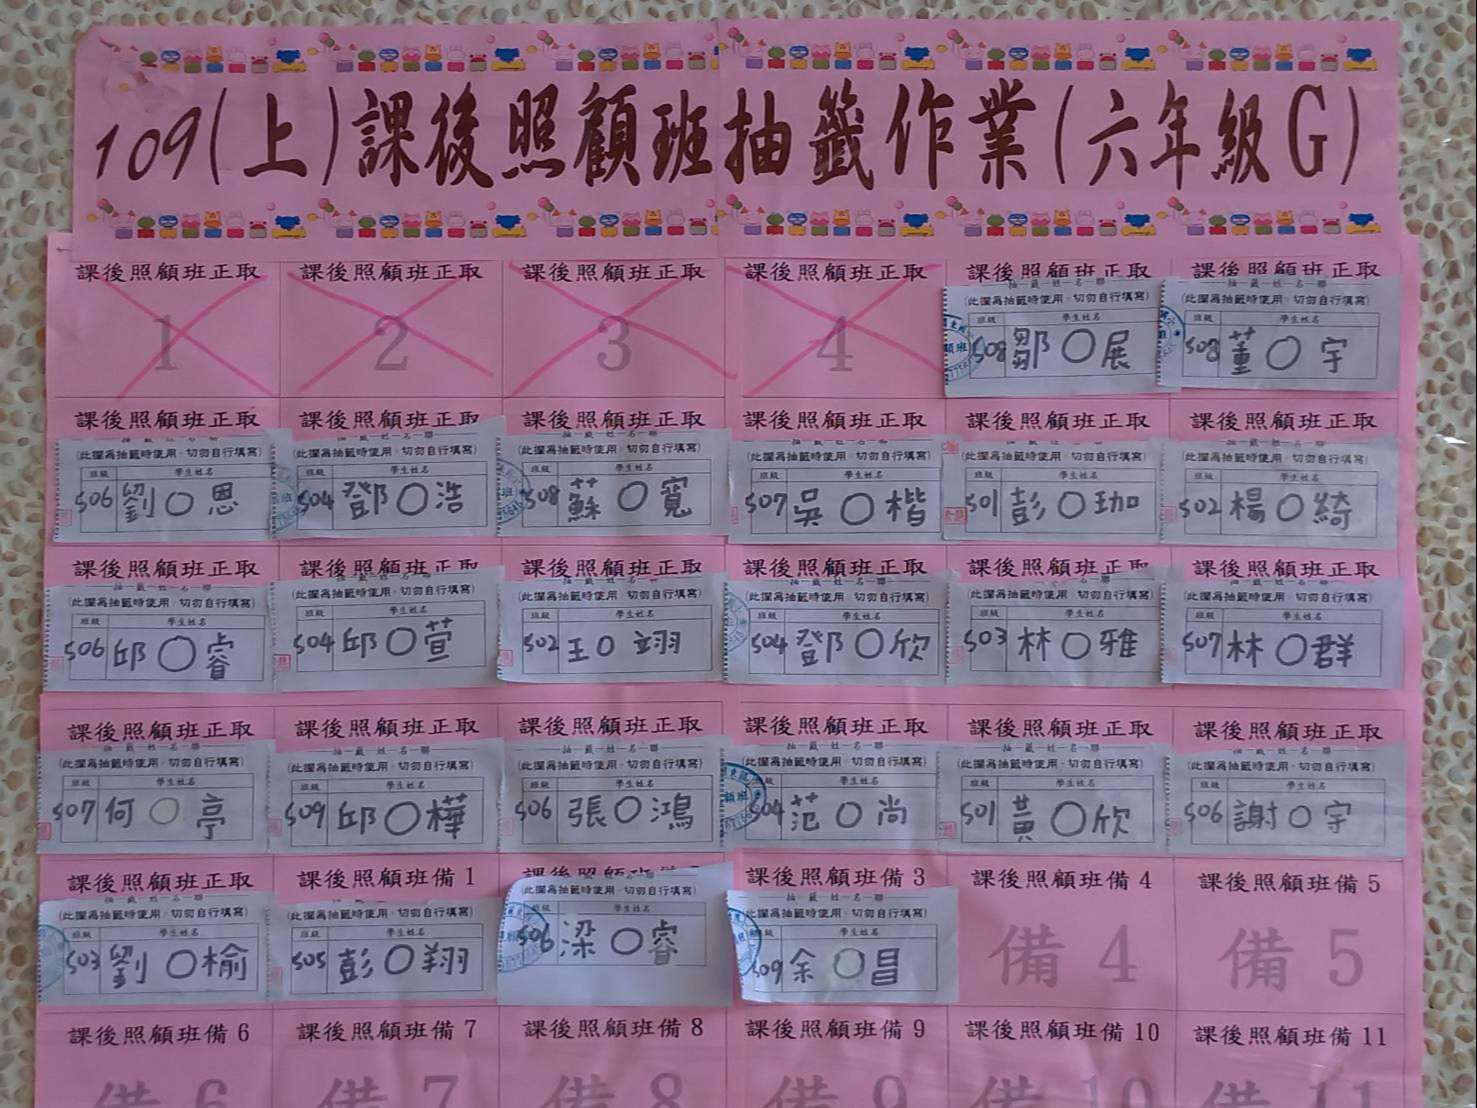 109(上)課後照顧班抽籤作業(六年級G)
課後照顧班正取 課後照顧班正取 課後照顧班正取 課後照顧班正取 課後照顧班正取 課後照顧班正取
1 2 3 4
抽籤姓名聯 抽籤姓名聯
(此欄為抽籤時使用，切勿自行填寫) (此欄為抽籤時使用，切勿自行填寫)
班級 學生姓名 班級 學生姓名
508 鄒○展 508 董○宇
課後照顧班正取 課後照顧班正取 課後照顧班正取 課後照顧班正取 課後照顧班正取 課後照顧班正取
(此欄為抽籤時使用，切勿自行填寫) (此欄為抽籤時使用，切勿自行填寫) (此欄為抽籤時使用，切勿自行填寫) (此欄為抽籤時使用，切勿自行填寫) (此欄為抽籤時使用，切勿自行填寫) (此欄為抽籤時使用，切勿自行填寫)
班級 學生姓名 班級 學生姓名 班級 學生姓名 班級 學生姓名 班級 學生姓名 班級 學生姓名
506 劉○恩 504 鄧○浩 508 蘇○寬 507 吳○楷 501 彭○珈 502 楊○綺
課後照顧班正取 課後照顧班正取 課後照顧班正取 課後照顧班正取 課後照顧班正取 課後照顧班正取
(此欄為抽籤時使用，切勿自行填寫) (此欄為抽籤時使用，切勿自行填寫) (此欄為抽籤時使用，切勿自行填寫) (此欄為抽籤時使用，切勿自行填寫) (此欄為抽籤時使用，切勿自行填寫) (此欄為抽籤時使用，切勿自行填寫)
班級 學生姓名 班級 學生姓名 班級 學生姓名 班級 學生姓名 班級 學生姓名 班級 學生姓名
506 邱○睿 504 邱○萱 502 王○翊 504 鄧○欣 503 林○雅 507 林○群
課後照顧班正取 課後照顧班正取 課後照顧班正取 課後照顧班正取 課後照顧班正取 課後照顧班正取
抽籤姓名聯 抽籤姓名聯 抽籤姓名聯 抽籤姓名聯 抽籤姓名聯 抽籤姓名聯
(此欄為抽籤時使用，切勿自行填寫) (此欄為抽籤時使用，切勿自行填寫) (此欄為抽籤時使用，切勿自行填寫) (此欄為抽籤時使用，切勿自行填寫) (此欄為抽籤時使用，切勿自行填寫) (此欄為抽籤時使用，切勿自行填寫)
班級 學生姓名 班級 學生姓名 班級 學生姓名 班級 學生姓名 班級 學生姓名 班級 學生姓名
507 何○亭 509 邱○樺 506 張○鴻 504 范○尚 501 黃○欣 506 謝○宇
課後照顧班正取 課後照顧班備1 課後照顧班備3 課後照顧班備4 課後照顧班備5
(此欄為抽籤時使用，切勿自行填寫) (此欄為抽籤時使用，切勿自行填寫) (此欄為抽籤時使用，切勿自行填寫) (此欄為抽籤時使用，切勿自行填寫)
班級 學生姓名 班級 學生姓名 班級 學生姓名 班級 學生姓名
503 劉○榆 505 彭○翔 506 梁○睿 509 余○昌 備4 備5
課後照顧班備6 課後照顧班備7 課後照顧班備8 課後照顧班備9 課後照顧班備10 課後照顧班備11
備6 備7 備8 備9 備10 備11